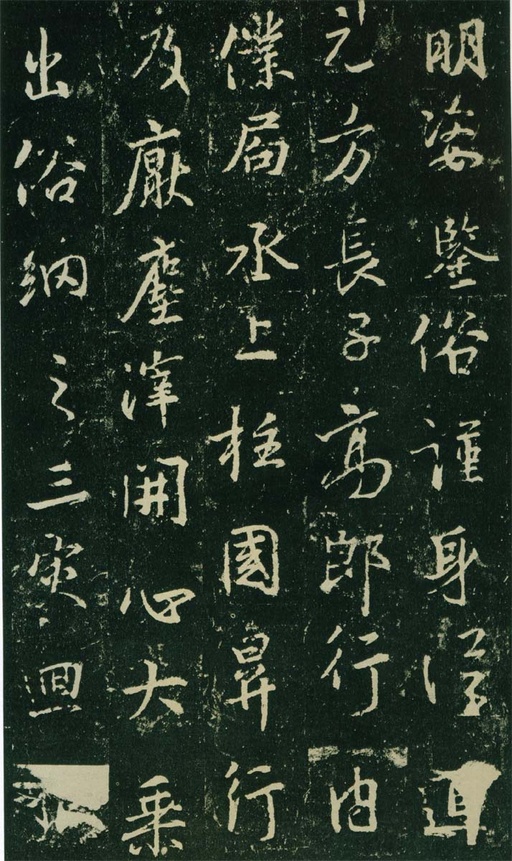 明姿鑒俗謹身
元方長子高郎行內
僕局丞上柱國昇行
及厭塵滓開心大乘
出俗納之三